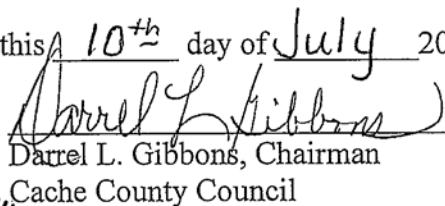 this 10th day of July 20
Darrel L Gibbons
Darrel L. Gibbons, Chairman
Cache County Council